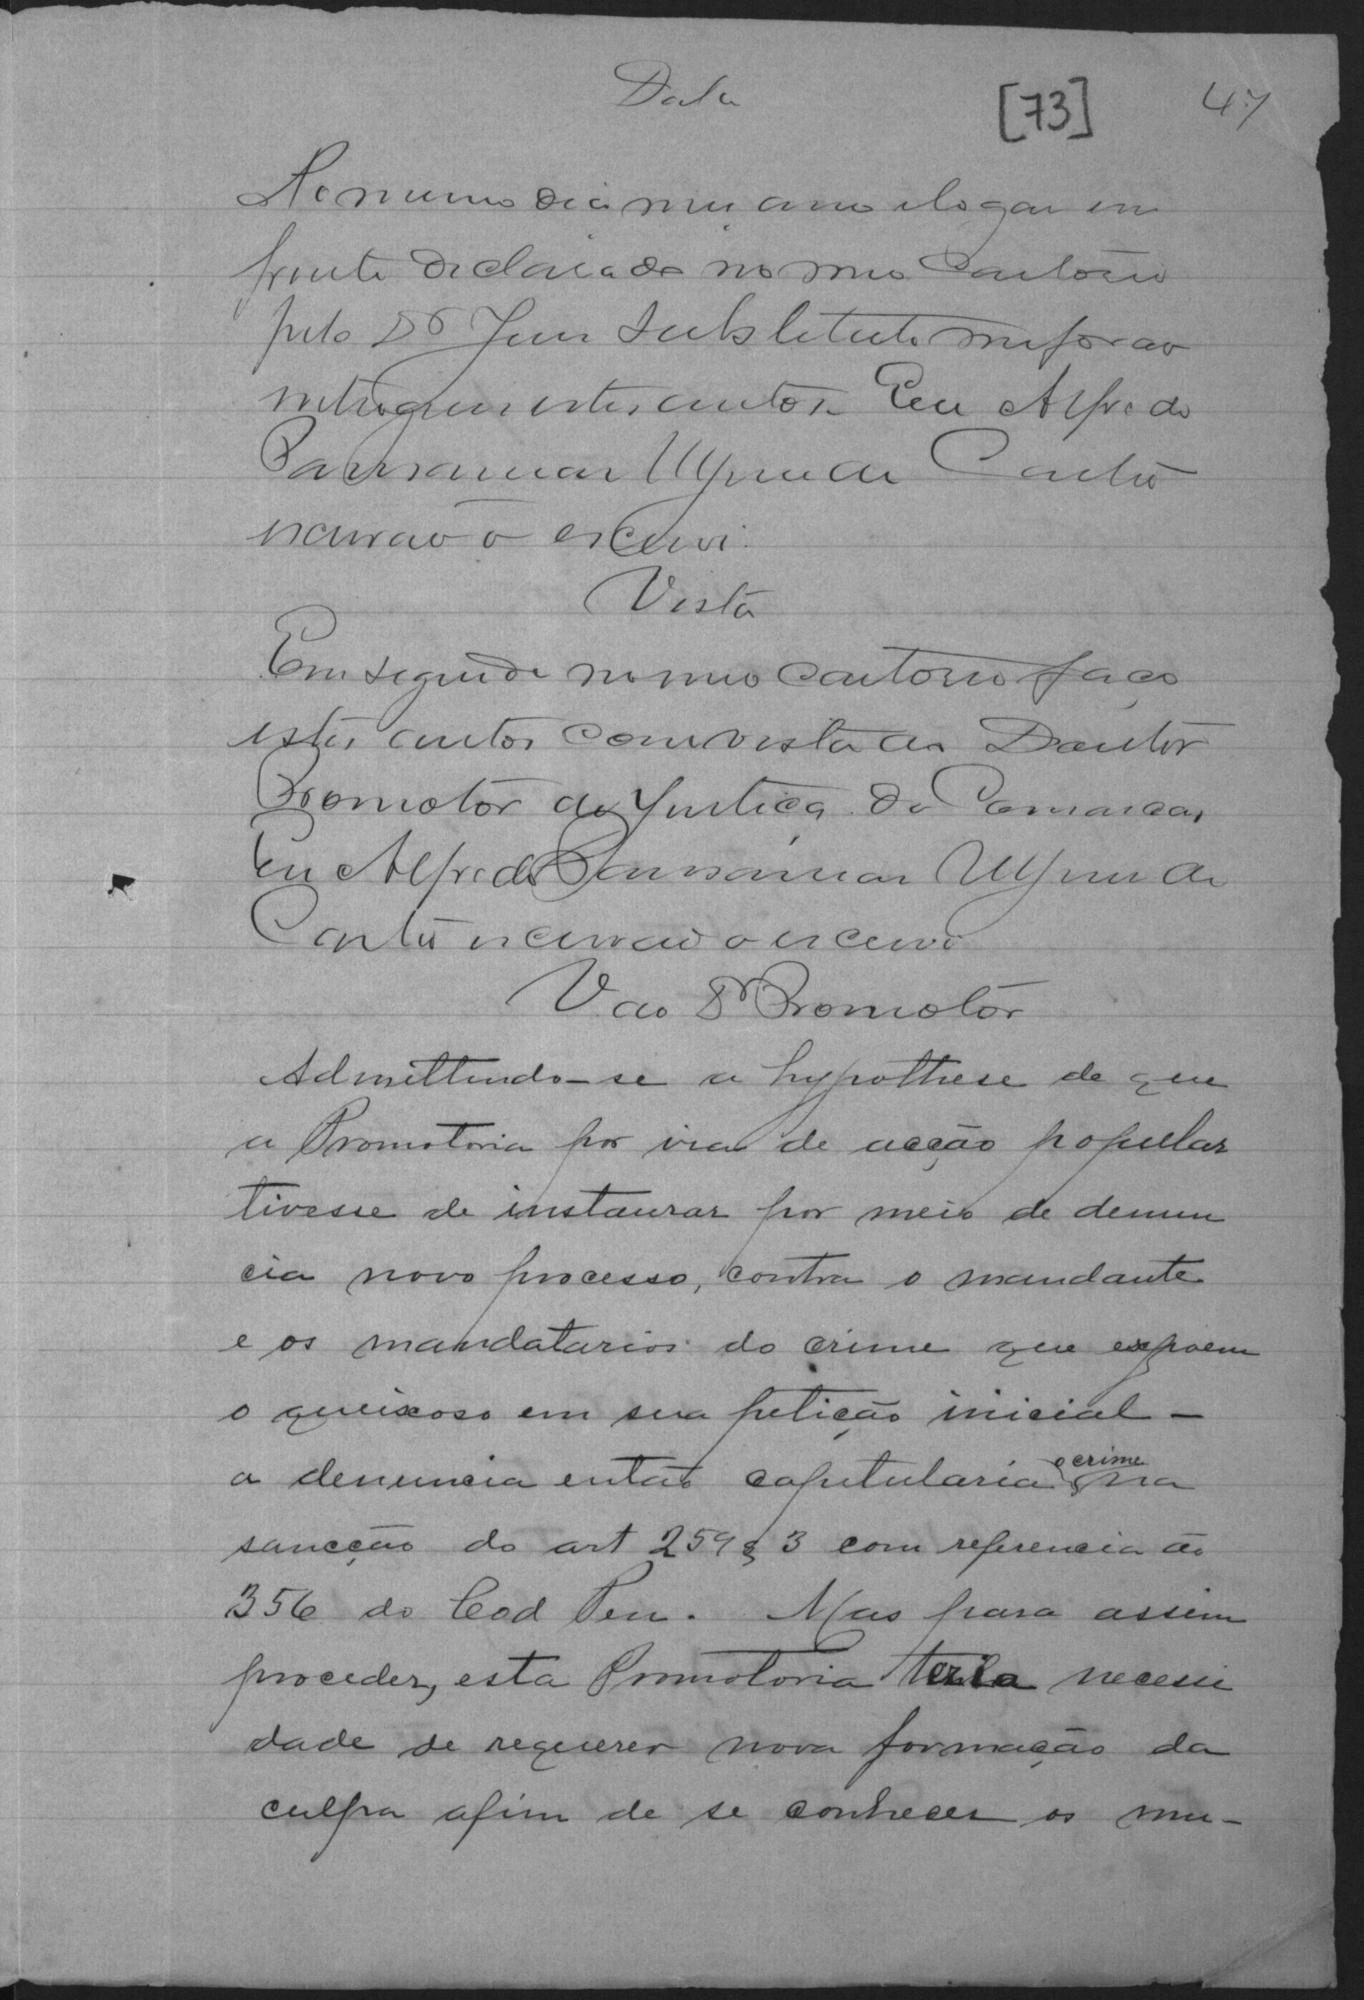 Data
[73]
47
No mesmo dia mez anno e logar em
frente declarado no meu Cartorio
pelo Dr Juiz Substituto me forão
entregues estes autos. Eu Alfredo
de Castro
escrivão o escrevi.
Vista
Em seguida no meu cartorio faço
estes autos com vista ao Doutor
Promotor da Justiça da Comarca,
Eu Alfredo de
Castro escrivão o escrevi
V ao Dr Promotor
Admittindo-se a hypothese de que
a Promotoria por via de acção popular
tivesse de instaurar por meio de denun
cia novo processo, contra o mandante
e os mandatarios do crime que expoem
o queixoso em sua petição inicial -
a denuncia então capitularia o crime na
sancção do art 259 § 3 com referencia ao
356 do Cod Pen. Mas para assim
proceder, esta Promotoria teria necessi
dade de requerer nova formação da
culpa afim de se conhecer os mu-